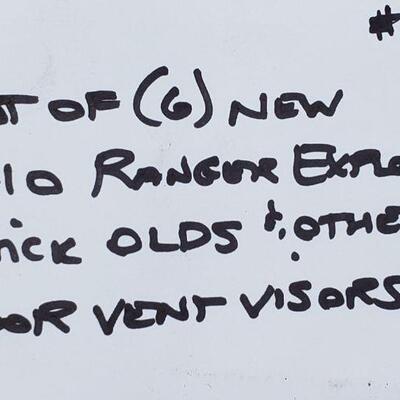 #
T OF (6) NEW
10 RANGER EXPLO
ICK OLDS &, OTHE
OOR VENT VISORS